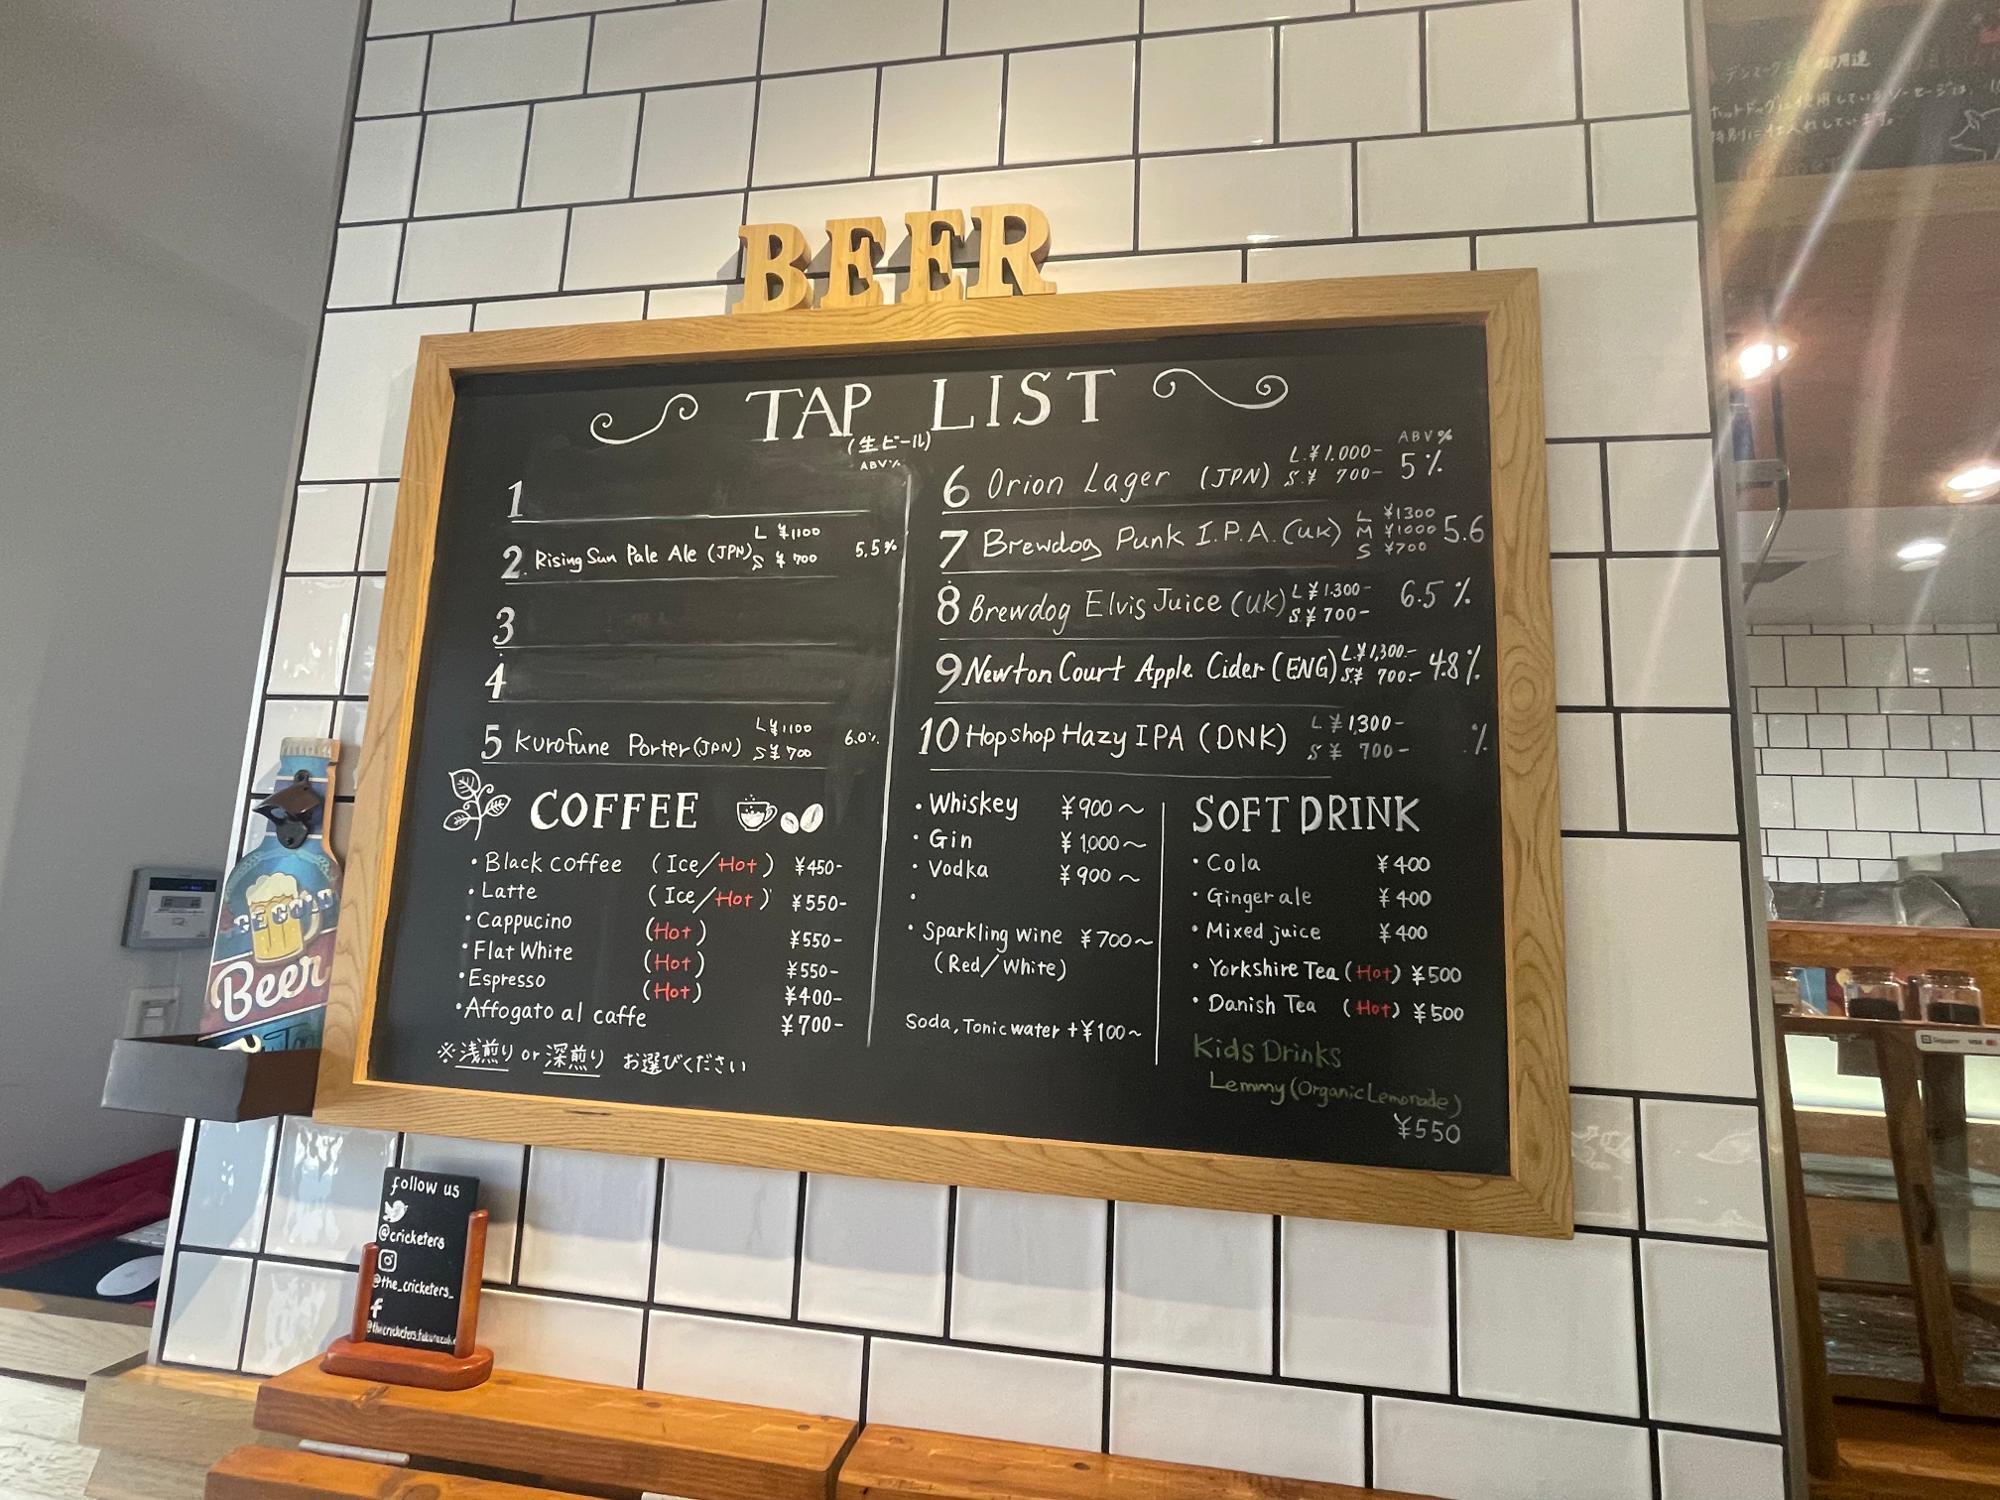 BEER
TAP LIST
(生ビール)
ABV%
1
2. Rising Sun Pale Ale (JPN) L ¥1100 S ¥700 5.5%
3
4
5 Kurofune Porter (JPN) L ¥1100 S ¥700 6.0%
ABV%
6 Orion Lager (JPN) L.¥1.000- S.¥ 700- 5%
7 Brewdog Punk I.P.A. (UK) L ¥1300 M ¥1000 S ¥700 5.6
8 Brewdog Elvis Juice (UK) L ¥1.300- S.¥700- 6.5%
9 Newton Court Apple Cider (ENG) L.¥1,300.- S.¥ 700.- 4.8%
10 Hopshop Hazy IPA (DNK) L ¥1,300- S ¥ 700- .%
COFFEE
・Black coffee (Ice/Hot) ¥450-
・Latte (Ice/Hot) ¥550-
・Cappucino (Hot) ¥550-
・Flat White (Hot) ¥550-
・Espresso (Hot) ¥400-
・Affogato al caffe ¥700-
※浅煎り or 深煎り お選びください
・Whiskey ¥900～
・Gin ¥1,000～
・Vodka ¥900～
・
・Sparkling wine ¥700～
(Red/White)
Soda, Tonic water +¥100～
SOFT DRINK
・Cola ¥400
・Ginger ale ¥400
・Mixed juice ¥400
・Yorkshire Tea (Hot) ¥500
・Danish Tea (Hot) ¥500
Kids Drinks
Lemmy (Organic Lemonade)
¥550
Beer
follow us
@cricketers
@the_cricketers_
ホットドッグに使用しているソーセージは、
特別に仕入れしています。
Square
VISA